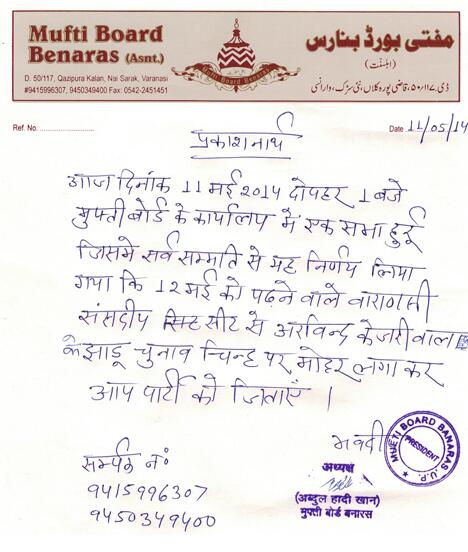 Mufti Board
Benaras (Asnt.)
D. 50/117, Qazipura Kalan, Nai Sarak, Varanasi
#9415996307, 9450349400 Fax: 0542-2451451
Mufti Board Benaras
مفتی بورڈ بنارس
(اہلسنّت)
ڈی ۵۰/۱۱۷، قاضی پورہ کلاں، نئی سڑک، وارانسی
Ref. No.
Date 11/05/14
प्रकाशनार्थ
आज दिनांक 11 मई 2014 दोपहर 1 बजे
मुफ्ती बोर्ड के कार्यालय में एक सभा हुई
जिसमे सर्व सम्मति से यह निर्णय लिया
गया कि 12 मई को पढ़ने वाले वाराणसी
संसदीय सीट से अरविन्द केजरीवाल
के झाडू चुनाव चिन्ह पर मोहर लगा कर
आप पार्टी को जिताएँ ।
भवदी
MUFTI BOARD BANARAS U.P.
PRESIDENT
अध्यक्ष
(अब्दुल हादी खान)
मुफ्ती बोर्ड बनारस
सर्म्पक नं०
9415996307
9450349400